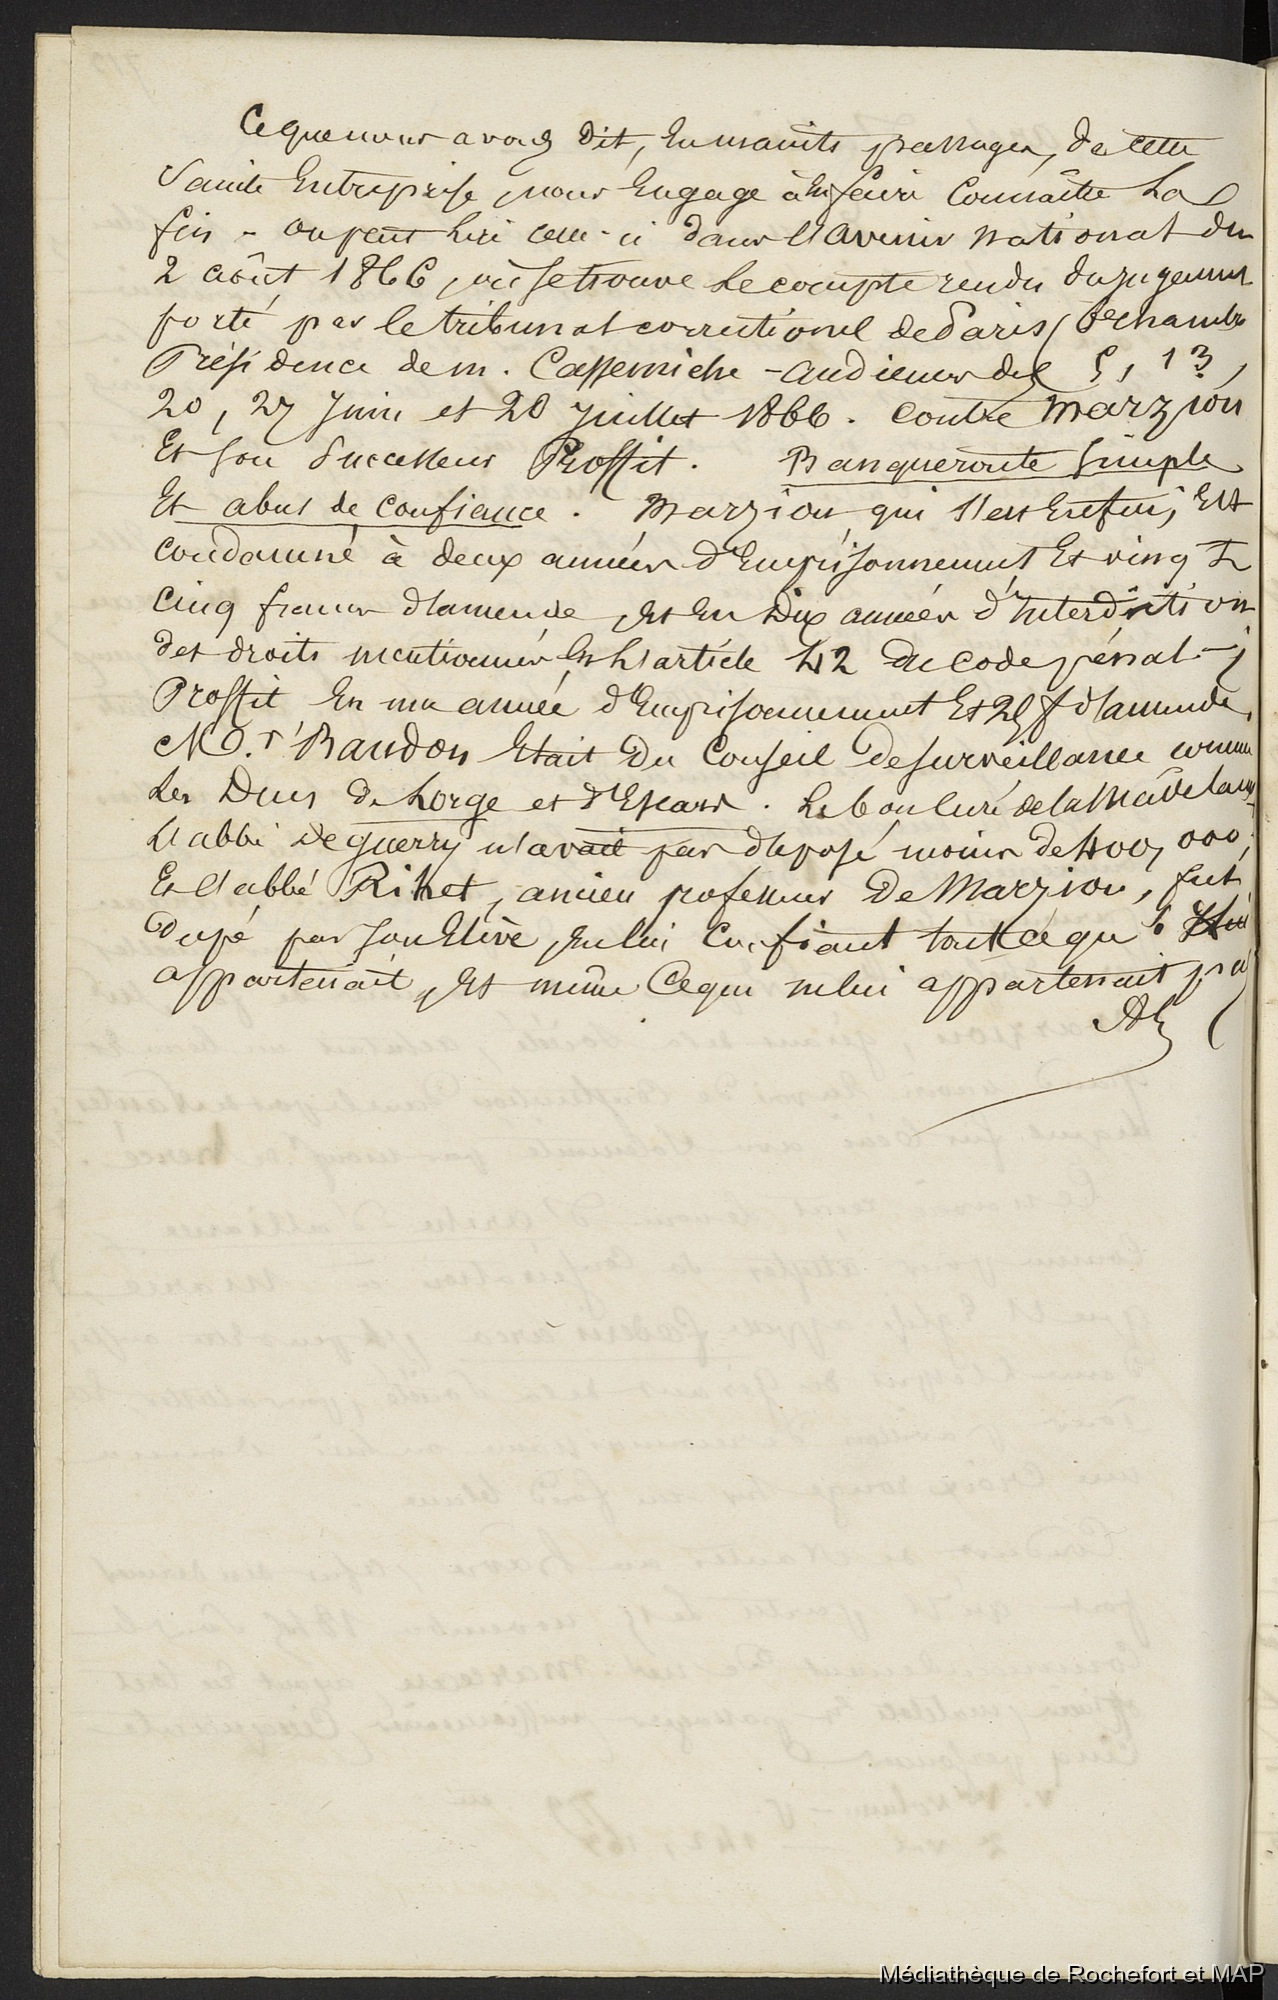 Ce que nous avons dit, en maints passages, de cette
Sainte Entreprise, nous Engage à en faire Connaître La
fin - on peut lire celle-ci dans l'avenir national du
2 août 1866, où se trouve le compte rendu du jugement
porté par le tribunal correctionel de Paris (6e chambre
Présidence de m. - audiences des 5, 13,
20, 27 Juin et 28 Juillet 1866. Contre Marzion
Et son Successeur Proffit. Banqueroute Simple
Et abus de confiance. Marzion, qui s'est Enfui, Est
condamné à deux années d'Emprisonnement Et vingt
cinq francs d'amende, Et En Dix années d'Interdiction
des droits mentionnés En l'article 42 du code pénal -;
Proffit En une année d'Emprisonnement Et 25 f d'amende.
M.r Baudon Etait du Conseil de surveillance comme
Les Ducs de Lorge et d'Escars. Le bon Curé de la
L'abbé Deguerry n'avait pas déposé moins de 400,000;
Et l'abbé, ancien professeur De Marzion, fut
Dupé par son Elève, En lui Confiant tout ce qui lui
appartenait, Et même Ce qui ne lui appartenait pas
Médiathèque de Rochefort et MAP